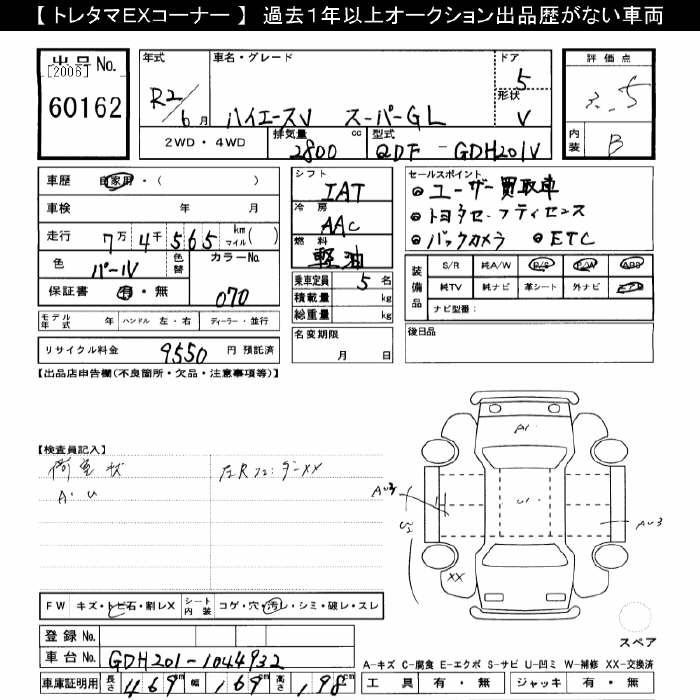 【 トレタマEXコーナー 】 過去１年以上オークション出品歴がない車両
出品 No.
[2006]
60162
年式
R2/6月
車名・グレード
ハイエースV スーパーGL
ドア
5
形状
V
評価点
3.5
内装
B
2WD・4WD
排気量
2800 cc
型式
QDF - GDH201V
車歴 自家用・( )
車検 年 月
走行 7万4千565 km マイル( )
色 パール
色替
カラーNo. 070
保証書 有・無
シフト
IAT
冷房
AAC
燃料
軽油
乗車定員 5 名
積載量 kg
総重量 kg
セールスポイント
◎ユーザー買取車
◎トヨタセーフティセンス
◎バックカメラ ◎ETC
装備品
S/R 純A/W P/S P/W ABS
純TV 純ナビ 革シート 外ナビ エアB
ナビ型番:
モデル年式 年 ハンドル 左・右 ディーラー・並行
リサイクル料金 9550 円 預託済
名変期限
月 日
後日品
【出品店申告欄(不良箇所・欠品・注意事項等)】
【検査員記入】
荷室状
A・U
左Rフェンダー XX
A1
U1
U2
AU3
XX
FW キズ・トビ石・割レX
シート内装 コゲ・穴・汚レ・シミ・破レ・スレ
スペア
登録 No.
車台 No. GDH201-1044932
車庫証明用 長さ 469cm 幅 169cm 高さ 198cm
A-キズ C-腐食 E-エクボ S-サビ U-凹ミ W-補修 XX-交換済
工具 有・無 ジャッキ 有・無